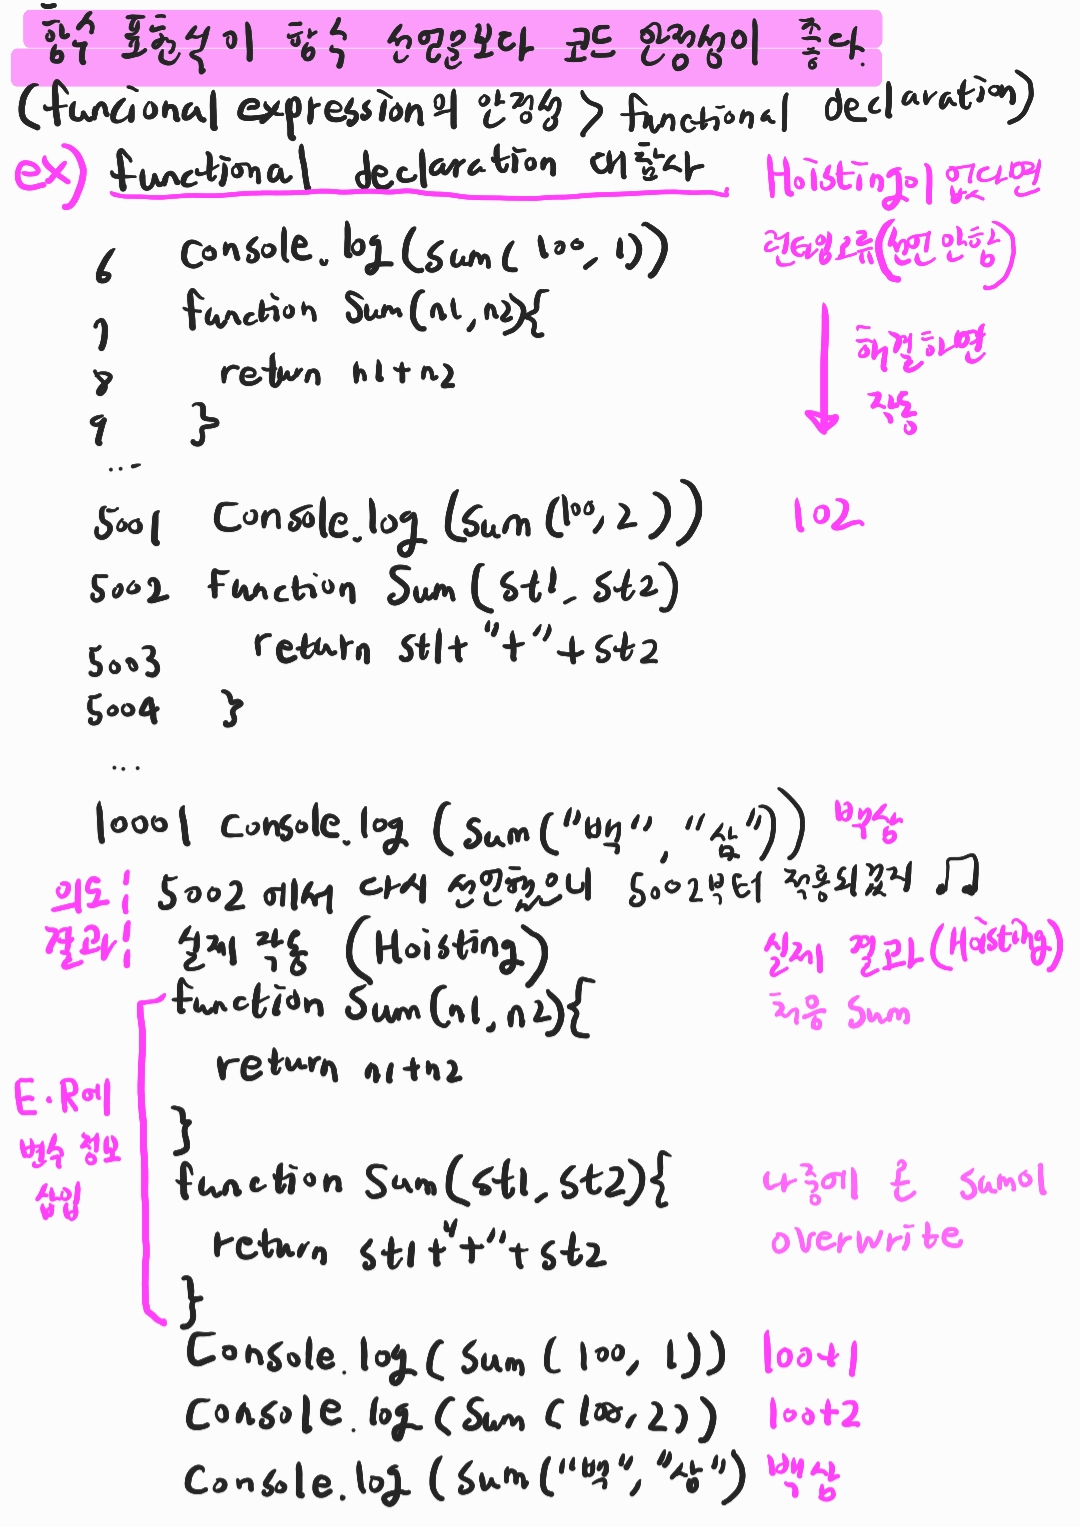 함수 표현식이 함식 선언문보다 코드 안정성이 좋다.
(funcional expression의 안정성 > functional declaration)
ex) functional declaration 대참사
Hoisting이 없다면
런타임오류(선언 안함)
6 console.log(sum(100, 1))
7 function Sum(n1, n2){
8 return n1+n2
9 }
해결하면
작동
...
5001 Console.log (sum (100, 2))
102
5002 function Sum (st1, st2)
5003 return st1+ "+" + st2
5004 }
...
10001 console.log (sum("백", "삼"))
백삼
의도: 5002 에서 다시 선언했으니 5002부터 적용되겠지 ♫
결과: 실제 작동 (Hoisting)
실제 결과(Hoisting)
처음 Sum
function Sum(n1, n2){
return n1+n2
}
E.R에
변수 정보
삽입
function Sum(st1, st2){
return st1+"+"+st2
}
나중에 온 sum이
overwrite
Console.log(Sum(100, 1)) 100+1
Console.log(Sum(100, 2)) 100+2
Console.log(Sum("백", "삼") 백삼